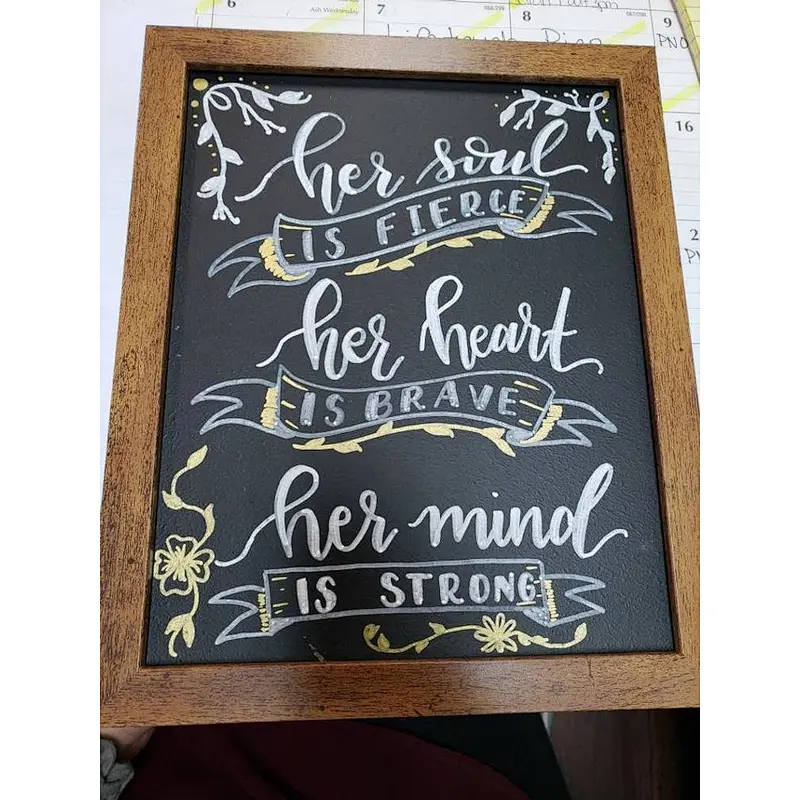 6
Ash Wednesday
7
8
9
PNO
16
2
her soul
IS FIERCE
her heart
IS BRAVE
her mind
IS STRONG